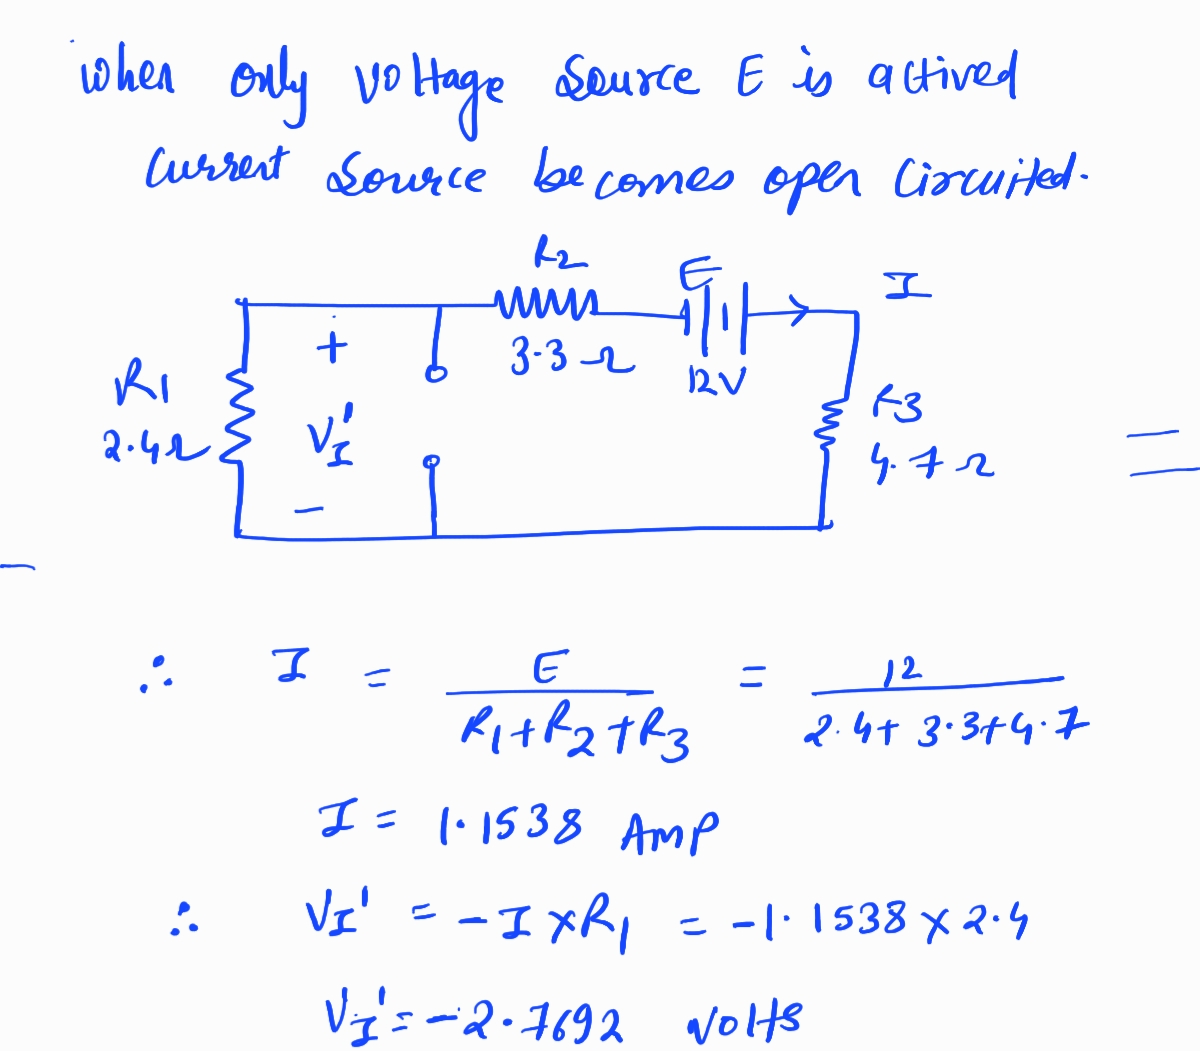 when only voltage source E is actived
current source becomes open circuited.
R2
E
I
+
3.3 Ω
12V
R1
R3
2.4Ω
VI'
4.7 Ω
−
∴ I = E / R1+R2+R3 = 12 / 2.4+3.3+4.7
I = 1.1538 AMP
∴ VI' = -I×R1 = -1.1538×2.4
VI' = -2.7692 volts